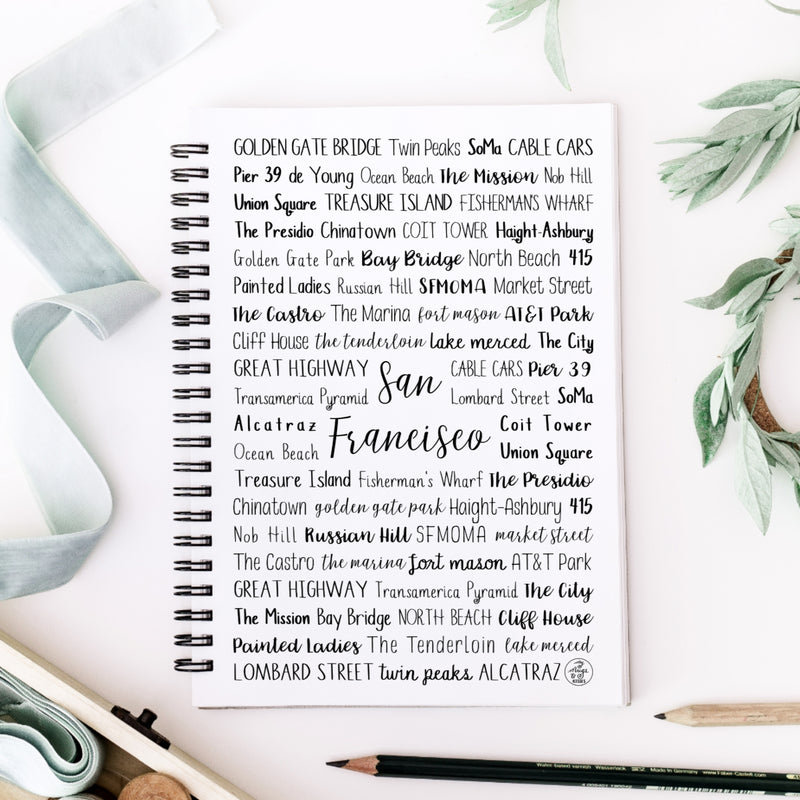 GOLDEN GATE BRIDGE Twin Peaks SoMa CABLE CARS
Pier 39 de Young Ocean Beach The Mission Nob Hill
Union Square TREASURE ISLAND FISHERMAN'S WHARF
The Presidio Chinatown COIT TOWER Haight-Ashbury
Golden Gate Park Bay Bridge North Beach 415
Painted Ladies Russian Hill SFMOMA Market Street
The Castro The Marina fort mason AT&T Park
Cliff House the tenderloin lake merced The City
GREAT HIGHWAY CABLE CARS Pier 39
Transamerica Pyramid San Lombard Street SoMa
Alcatraz Francisco Coit Tower
Ocean Beach Union Square
Treasure Island Fisherman's Wharf The Presidio
Chinatown golden gate park Haight-Ashbury 415
Nob Hill Russian Hill SFMOMA market street
The Castro the marina fort mason AT&T Park
GREAT HIGHWAY Transamerica Pyramid The City
The Mission Bay Bridge NORTH BEACH Cliff House
Painted Ladies The Tenderloin lake merced
LOMBARD STREET twin peaks ALCATRAZ
Made in Germany www.Faber-Castell.com